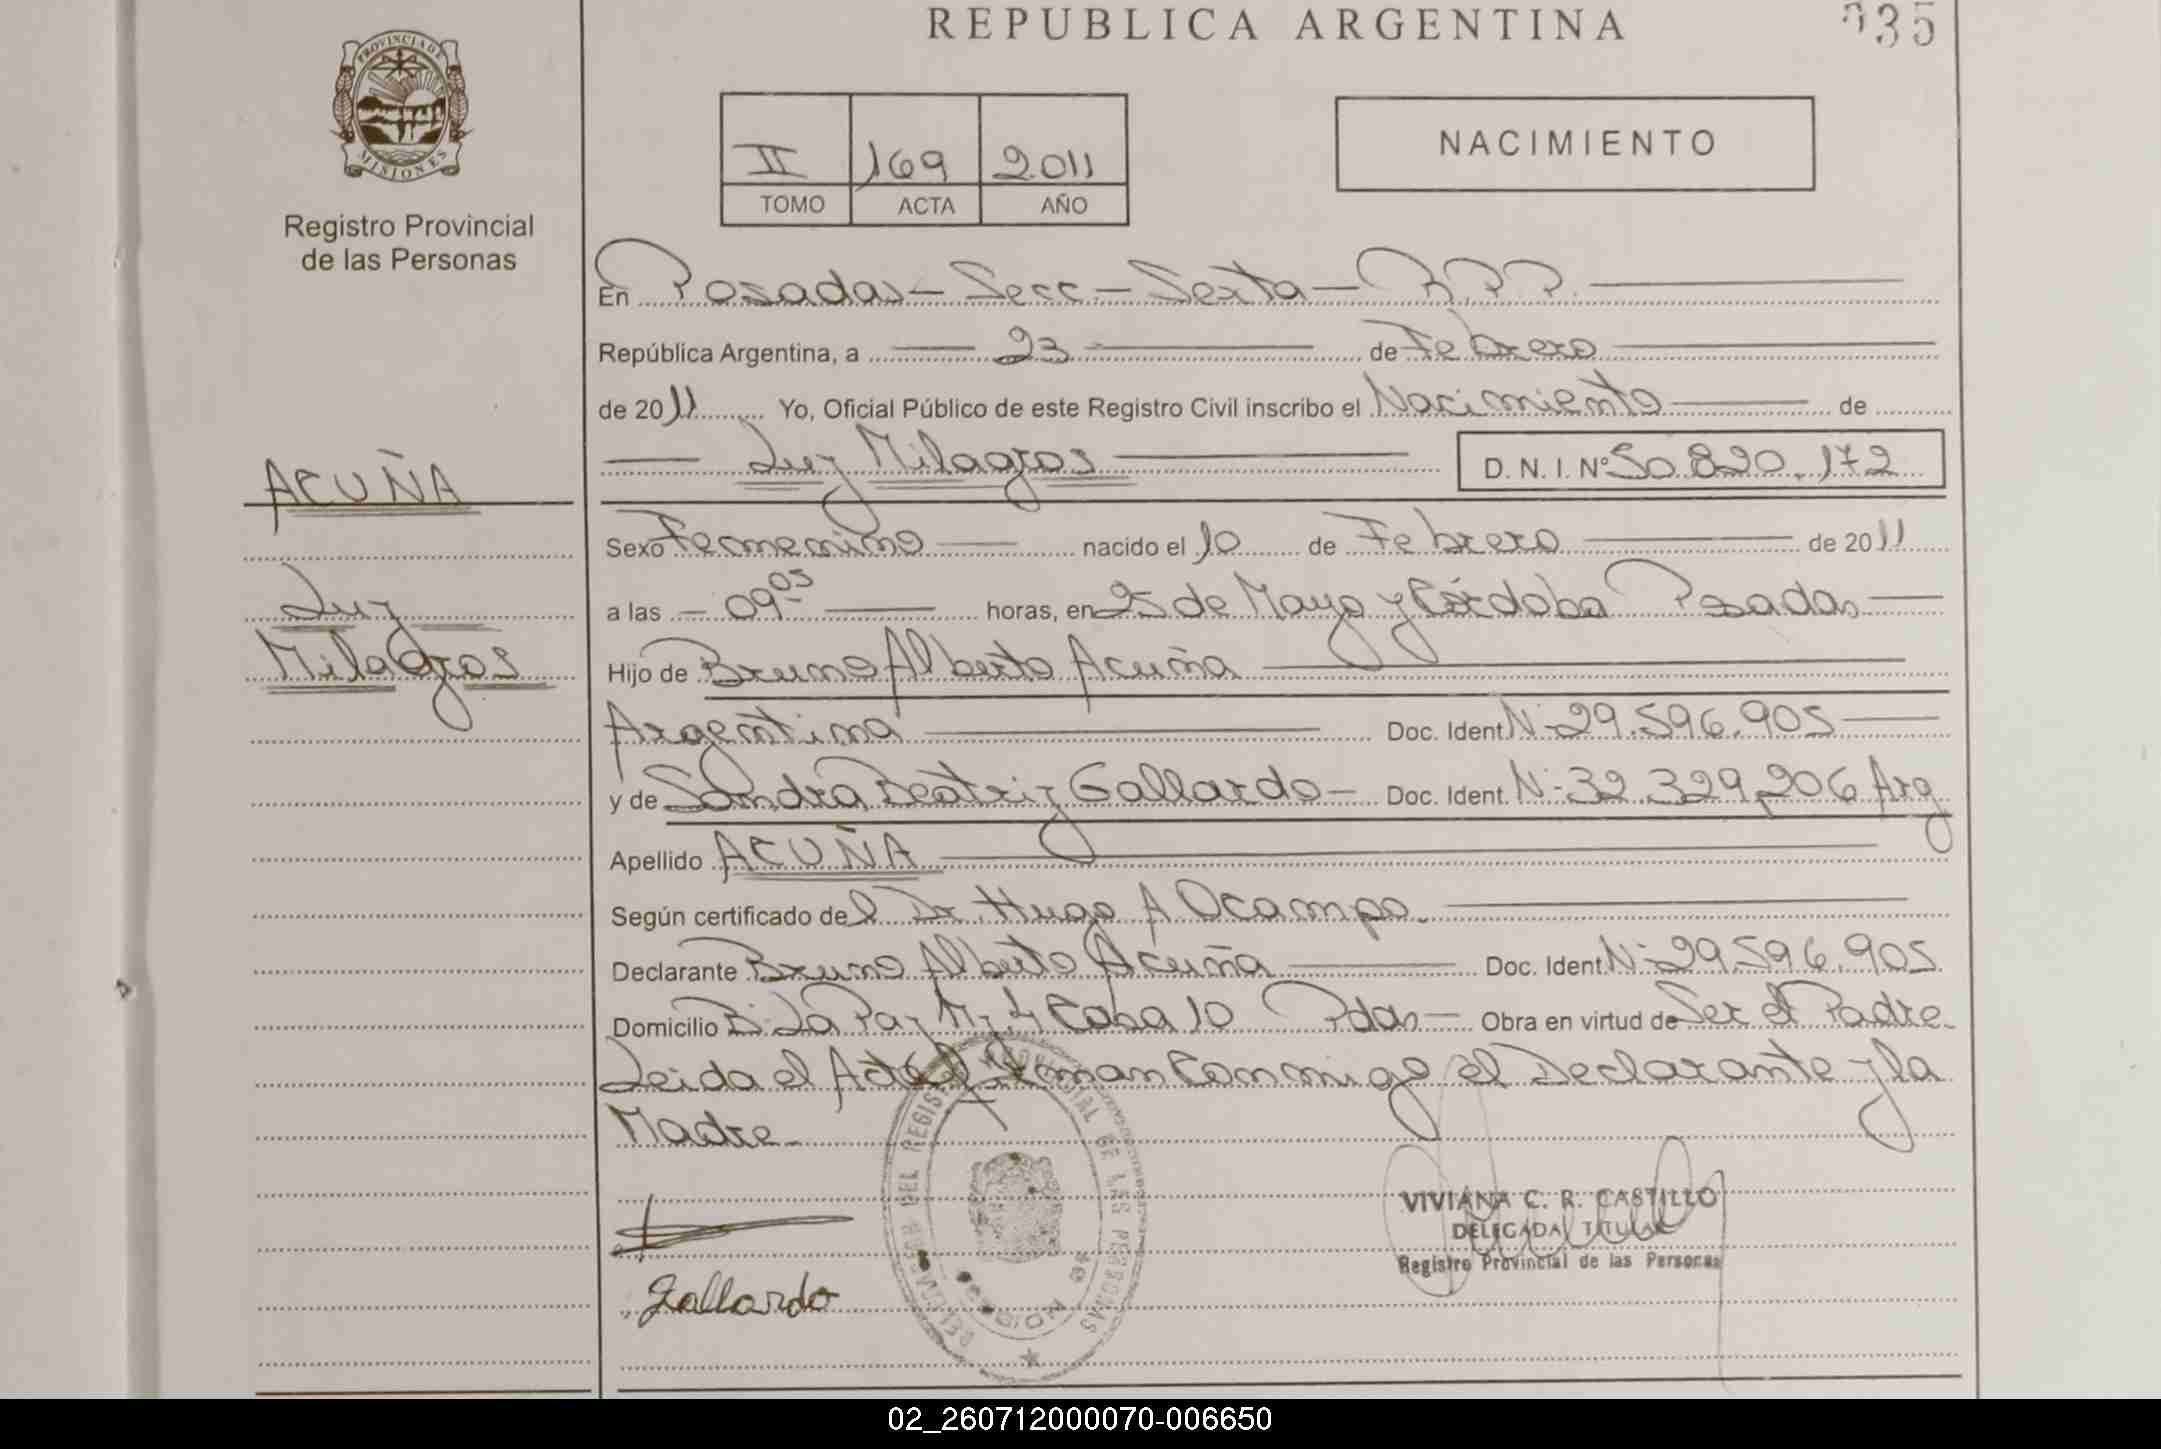 REPUBLICA ARGENTINA
035
PROVINCIA DE
MISIONES
Registro Provincial
de las Personas
II 169 2011
TOMO ACTA AÑO
NACIMIENTO
En Posadas - Secc - Sexta - R.P.P.
República Argentina, a 23 de Febrero
de 2011 Yo, Oficial Público de este Registro Civil inscribo el Nacimiento de
Luz Milagros D. N. I. Nº 50.820.172
ACUÑA
Luz
Milagros
Sexo Femenino nacido el 10 de Febrero de 2011
a las 09 05 horas, en 25 de Mayo y Córdoba Posadas
Hijo de Bruno Alberto Acuña
Argentina Doc. Ident. Nº 29.596.905
y de Sandra Beatriz Gallardo - Doc. Ident. Nº 32.329.206 Arg
Apellido ACUÑA
Según certificado del Dr Hugo A Ocampo.
Declarante Bruno Alberto Acuña Doc. Ident. Nº 29.596.905
Domicilio Bº La Paz Mz 4 Casa 10 Pdas - Obra en virtud de Ser el Padre
Leida el Acta Firman Conmigo el Declarante y la
Madre -
DEL REGISTRO PROVINCIAL DE LAS PERSONAS
VIVIANA C. R. CASTILLO
DELEGADA TITULAR
Registro Provincial de las Personas
Gallardo
02_260712000070-006650